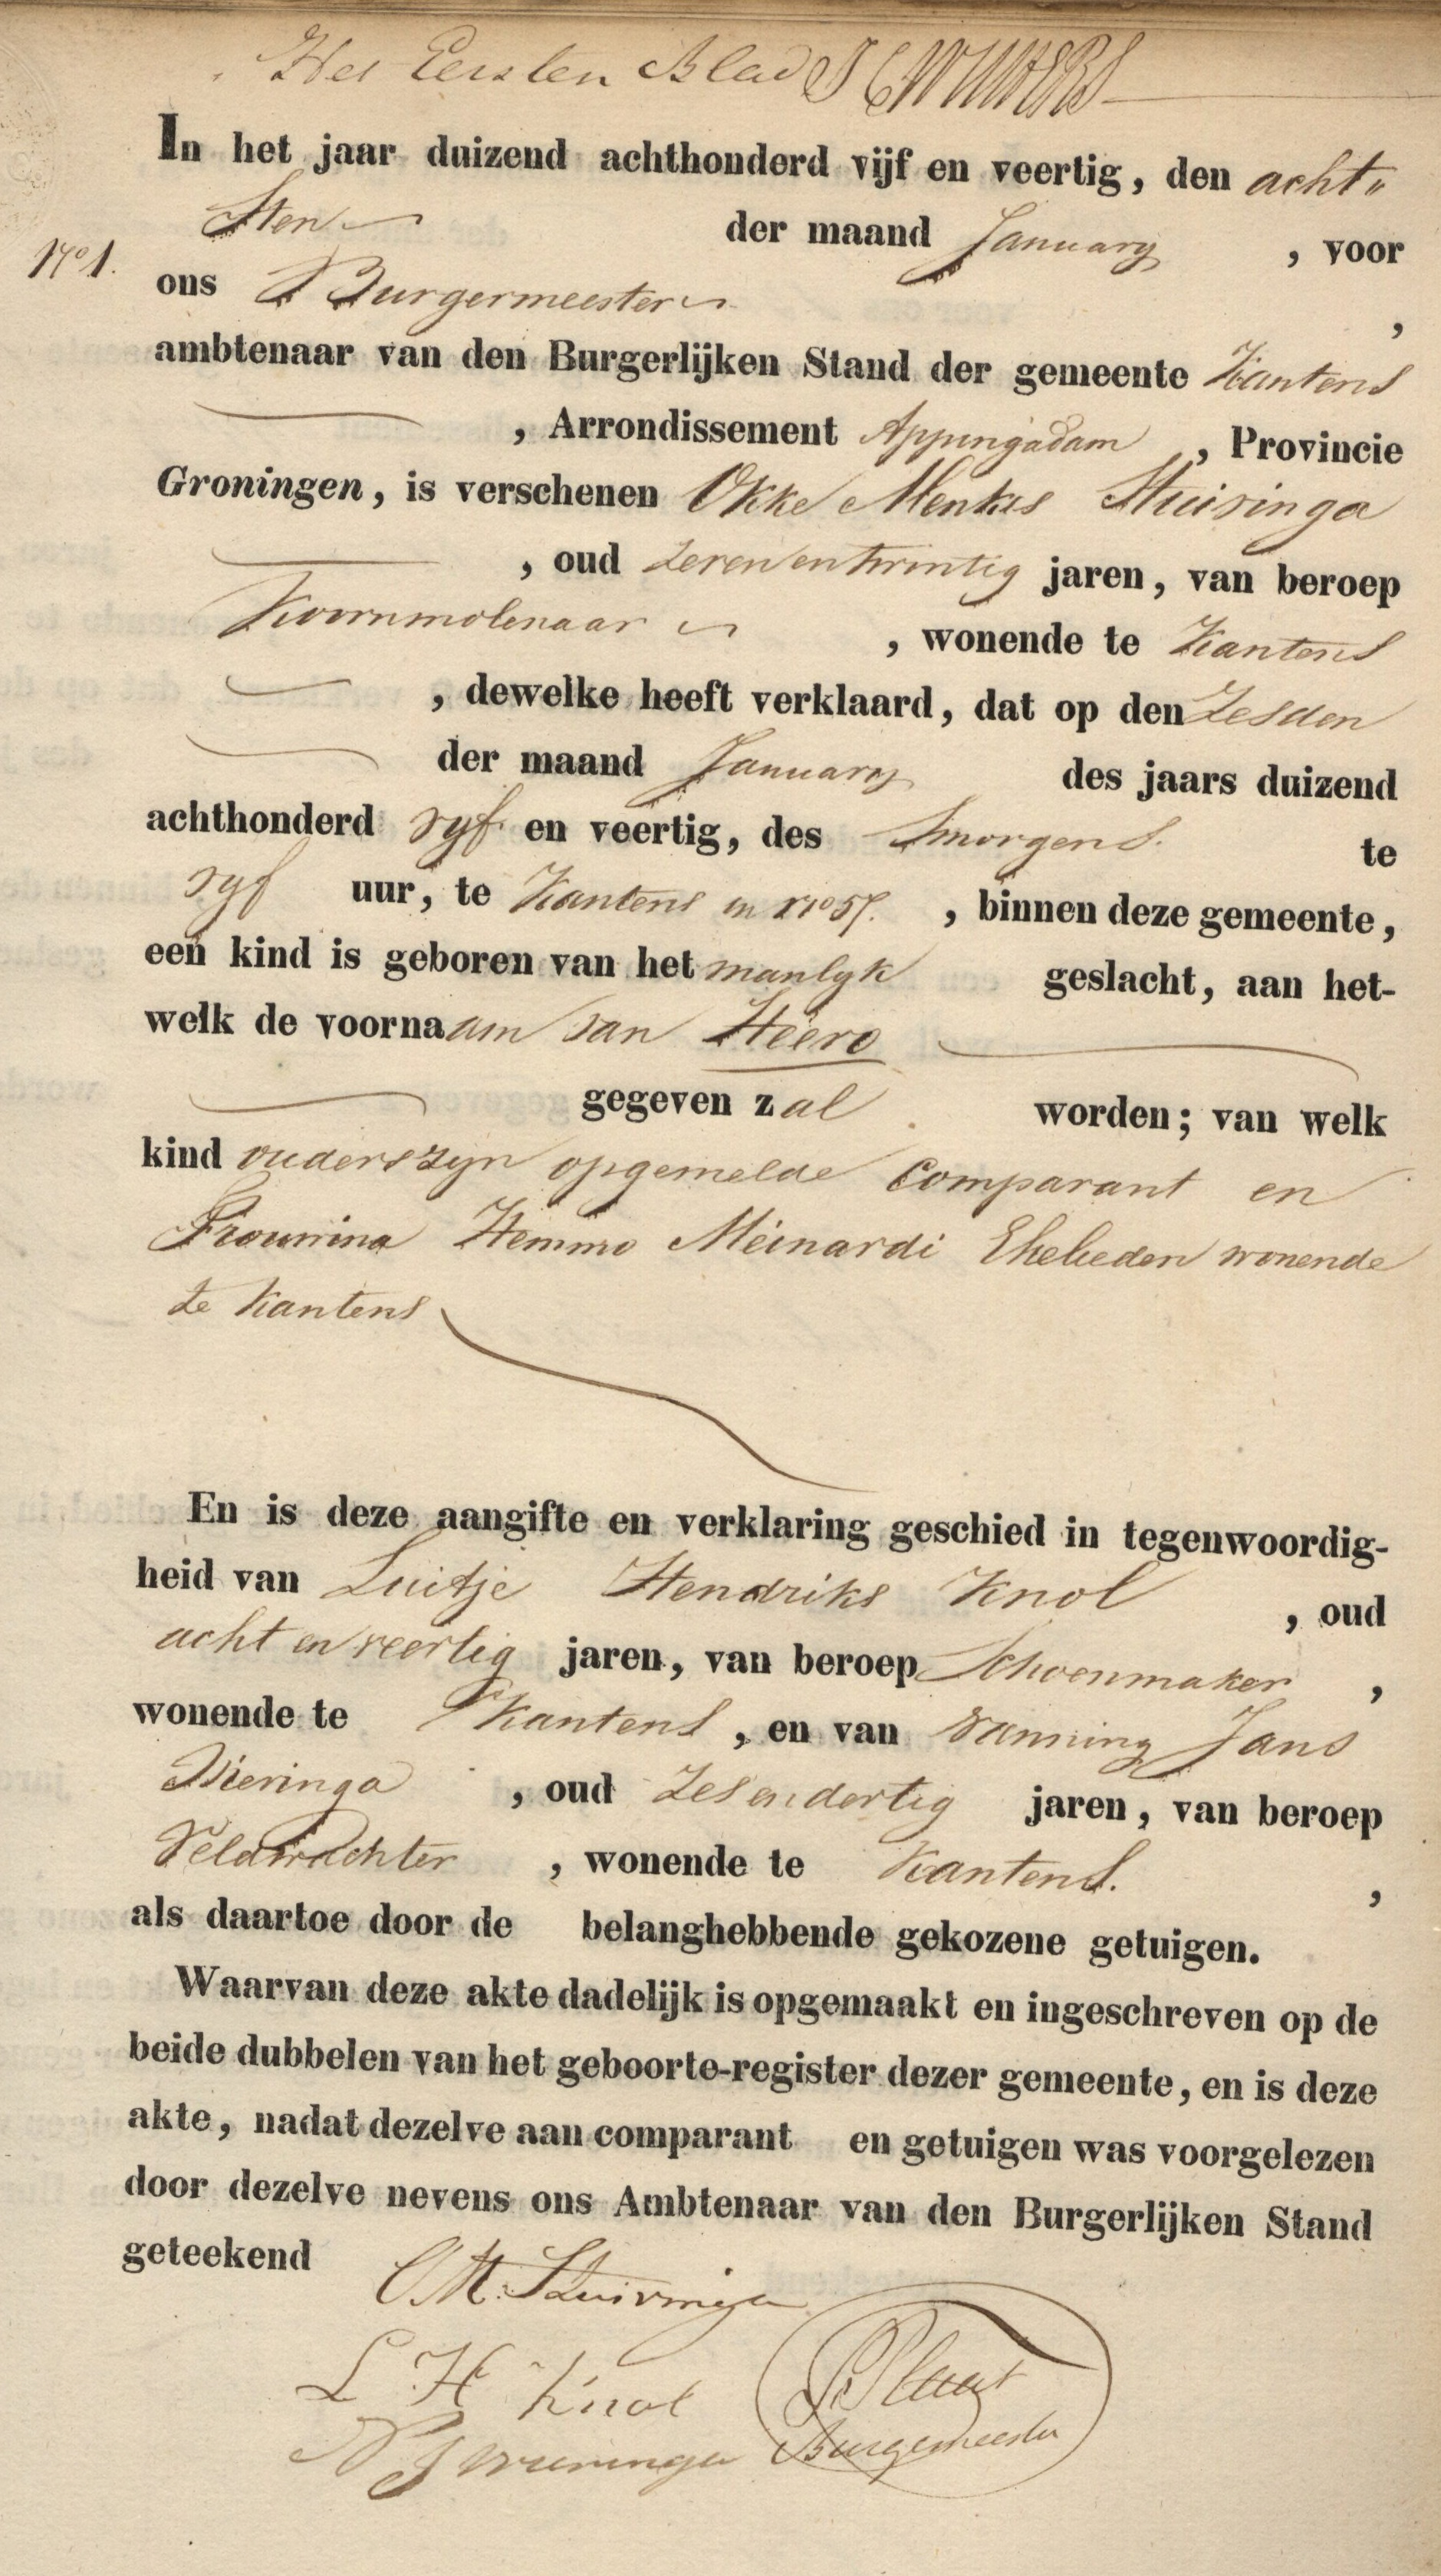 Het Eersten Blad
In het jaar duizend achthonderd vijf en veertig, den acht"
sten der maand January , voor
No 1.
ons Burgermeester ,
ambtenaar van den Burgerlijken Stand der gemeente Kantens
, Arrondissement Appingadam , Provincie
Groningen, is verschenen Okke Menkes Huisinga
, oud zevenentwintig jaren, van beroep
Koornmolenaar , wonende te Kantens
, dewelke heeft verklaard, dat op den Zesden
der maand January des jaars duizend
achthonderd vyf en veertig, des smorgens te
vyf uur, te Kantens in No 57. , binnen deze gemeente,
een kind is geboren van het manlyk geslacht, aan het-
welk de voornaam van Heero
gegeven zal worden; van welk
kind ouders zyn opgemelde Comparant en
Frouwina Hemmo Meinardi Ehelieden wonende
te Kantens
En is deze aangifte en verklaring geschied in tegenwoordig-
heid van Luitje Hendriks Knol , oud
acht en veertig jaren, van beroep Schoenmaker ,
wonende te Kantens , en van Nanning Jans
Wieringa , oud Zes en dertig jaren, van beroep
Veldwachter , wonende te Kantens. ,
als daartoe door de belanghebbende gekozene getuigen.
Waarvan deze akte dadelijk is opgemaakt en ingeschreven op de
beide dubbelen van het geboorte-register dezer gemeente, en is deze
akte, nadat dezelve aan comparant en getuigen was voorgelezen
door dezelve nevens ons Ambtenaar van den Burgerlijken Stand
geteekend
O. M. Huizinga
L H Knol
N J Wieringa Burgemeester